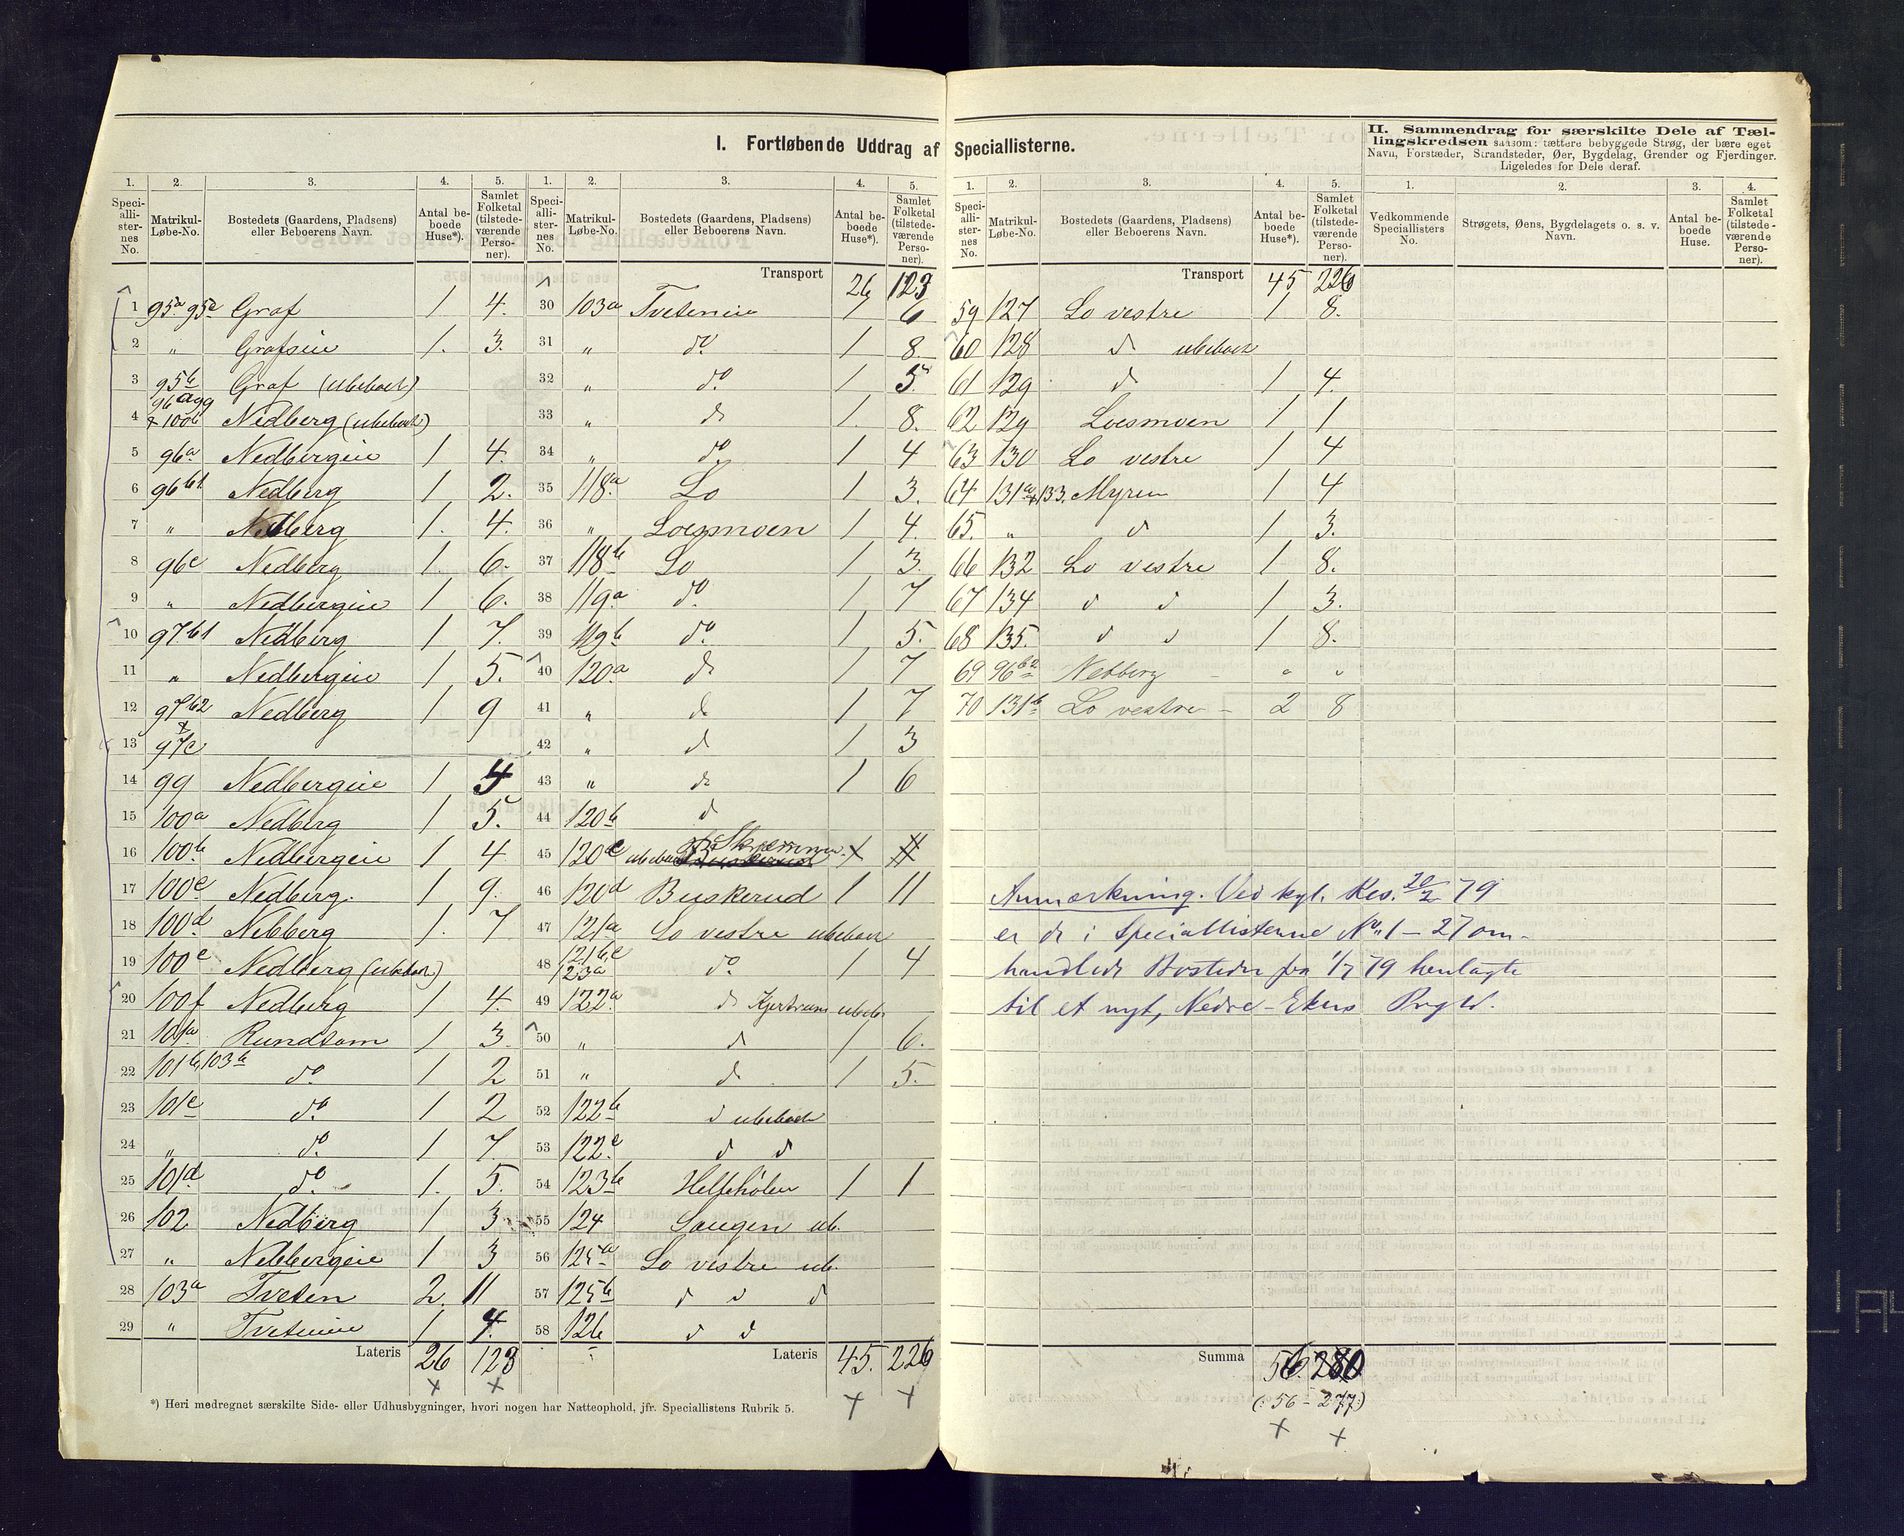 I. Fortløbende Uddrag af Speciallisterne.
II. Sammendrag for særskilte Dele af Tæl-
lingskredsen saasom: tættere bebyggede Strøg, der bære eget
Navn, Forstæder, Strandsteder, Øer, Bygdelag, Grender og Fjerdinger.
Ligeledes for Dele deraf.
1. 2. 3. 4. 5.
Speciallisternes No. Matrikul-Løbe-No. Bostedets (Gaardens, Pladsens) eller Beboerens Navn. Antal beboede Huse*). Samlet Folketal (tilstedeværende Personer).
1 95a 95c Graf 1 4.
2 " Grafseie 1. 3.
3 95b Graf (ubeboet)
4 96agg & 100b Nedberg (ubeboet)
5 96a Nedbergeie 1 4.
6 96b1 Nedberg 1 2.
7 " Nedberg 1. 4.
8 96c Nedberg 1. 6.
9 " Nedbergeie 1 6.
10 97b1 Nedberg 1 7.
11 " Nedbergeie 1 5.
12 97b2 Nedberg 1 9
13 & 97c
14 99 Nedbergeie 1 4
15 100a Nedberg 1 5.
16 100b Nedbergeie 1 4
17 100c Nedberg. 1 9.
18 100d Nebberg 1. 7
19 100e Nedberg (ubeboet)
20 100f Nedberg 1 4.
21 101a Rundtom 1 3.
22 101b, 103b do. 1 2
23 101c do. 1 2
24 " do. 1 7.
25 101d do. 1. 5.
26 102 Nedberg 1 3
27 " Nebbergeie 1 3
28 103a Tveten 2 11
29 " Tveteneie 1 4.
Lateris 26 123
1. 2. 3. 4. 5.
Speciallisternes No. Matrikul-Løbe-No. Bostedets (Gaardens, Pladsens) eller Beboerens Navn. Antal beboede Huse*). Samlet Folketal (tilstedeværende Personer).
Transport 26 123
30 103a Tveteneie 1 6
31 " do. 1 8.
32 " do. 1 5
33 " do 1. 8.
34 " do 1 4
35 118a Lo 1 3.
36 " Loesmoen 1 4.
37 118b Lo 1 3.
38 119a do. 1 7
39 119b do. 1 5.
40 120a do 1 7
41 " do 1 7
42 " d 1 3
43 " do 1 6
44 120b d
45 120c ubeboet
46 120d Buskerud 1 11
47 121a Lo vestre ubeboet
48 121b,c 123a do. 1 4
49 122a d
50 " d 1 6.
51 " d 1 5.
52 122b d ubeboet
53 122c d d
54 123b 1 1
55 124 Laugen ub.
56 125a Lo vestre ub.
57 125b d d d
58 126 d d
Lateris 45. 226
*) Heri medregnet særskilte Side- eller Udhusbygninger, hvori nogen har Natteophold, jfr. Speciallistens Rubrik 5.
1. 2. 3. 4. 5.
Speciallisternes No. Matrikul-Løbe-No. Bostedets (Gaardens, Pladsens) eller Beboerens Navn. Antal beboede Huse*). Samlet Folketal (tilstedeværende Personer).
Transport 45 226
59 127 Lo vestre 1 8.
60 128 d ubeboet
61 129 d 1 4.
62 129 Loesmoen 1 1
63 130 Lo vestre 1 4
64 131a & 133. Myren 1 4
65. " d 1 3.
66 132 Lo vestre 1 8.
67 134 d d 1 3.
68 135. d d 1 8.
69 96b2 Nebberg " "
70 131b Lo vestre 2 8
Anmærkning. Ved kgl. Res. 20/2 79
er de i Speciallisterne No 1 – 27 om-
handlede Bosteder fra 1/7 79 henlagte
til et nyt, Nedre-Ekers Prgld.
Summa 56. 280
(: 56 – 277:)
1. 2. 3. 4.
Vedkommende Speciallisters No. Strøgets, Øens, Bygdelagets o. s. v. Navn. Antal beboede Huse. Samlet Folketal (tilstedeværende Personer).